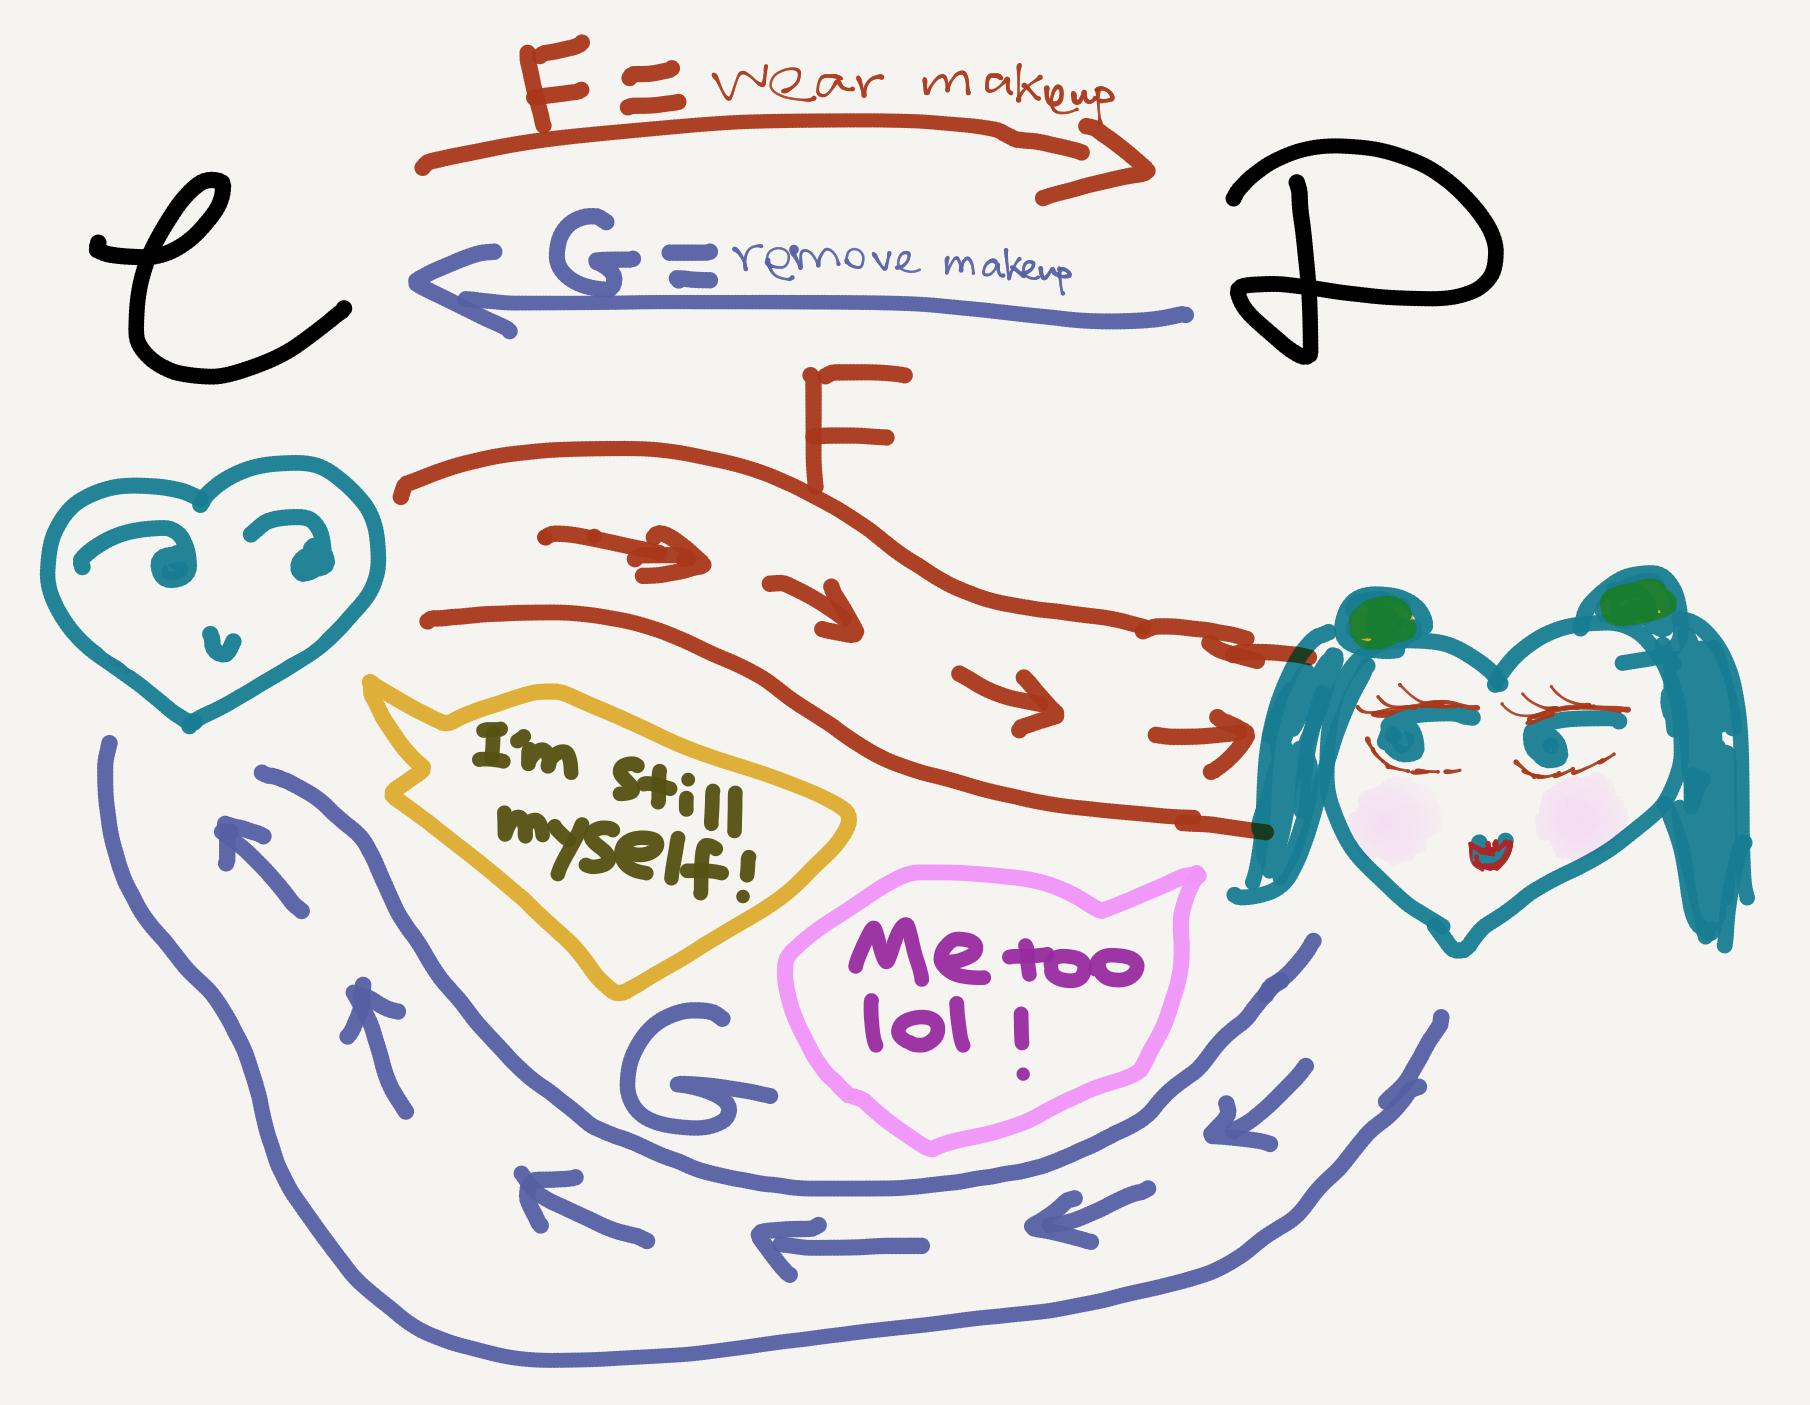 F = wear makeup
C
D
G = remove makeup
F
I'm still
myself!
Me too
lol !
G